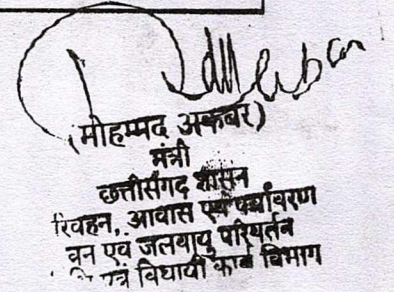 (मोहम्मद अकबर)
मंत्री
छत्तीसगढ़ शासन
रिवहन, आवास एवं पर्यावरण
वन एवं जलवायु परिवर्तन
विधायी कार्य विभाग